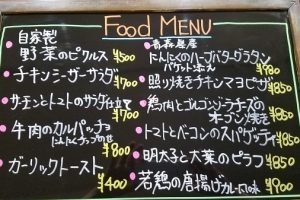 Food MENU
自家製
野菜のピクルス ¥500
チキンシーザーサラダ ¥700
サーモンとトマトのサラダ仕立て ¥700
牛肉のカルパッチョ
にんにくチップのせ ¥800
ガーリックトースト ¥400
青森県産
にんにくのハーブバターグラタン
バケット添え ¥780
照り焼きチキンマヨピザ ¥850
鶏肉とゴルゴンゾーラチーズの
オーブン焼き ¥850
トマトとベーコンのスパゲッティ ¥850
明太子と大葉のピラフ ¥850
若鶏の唐揚げカレー風味 ¥900